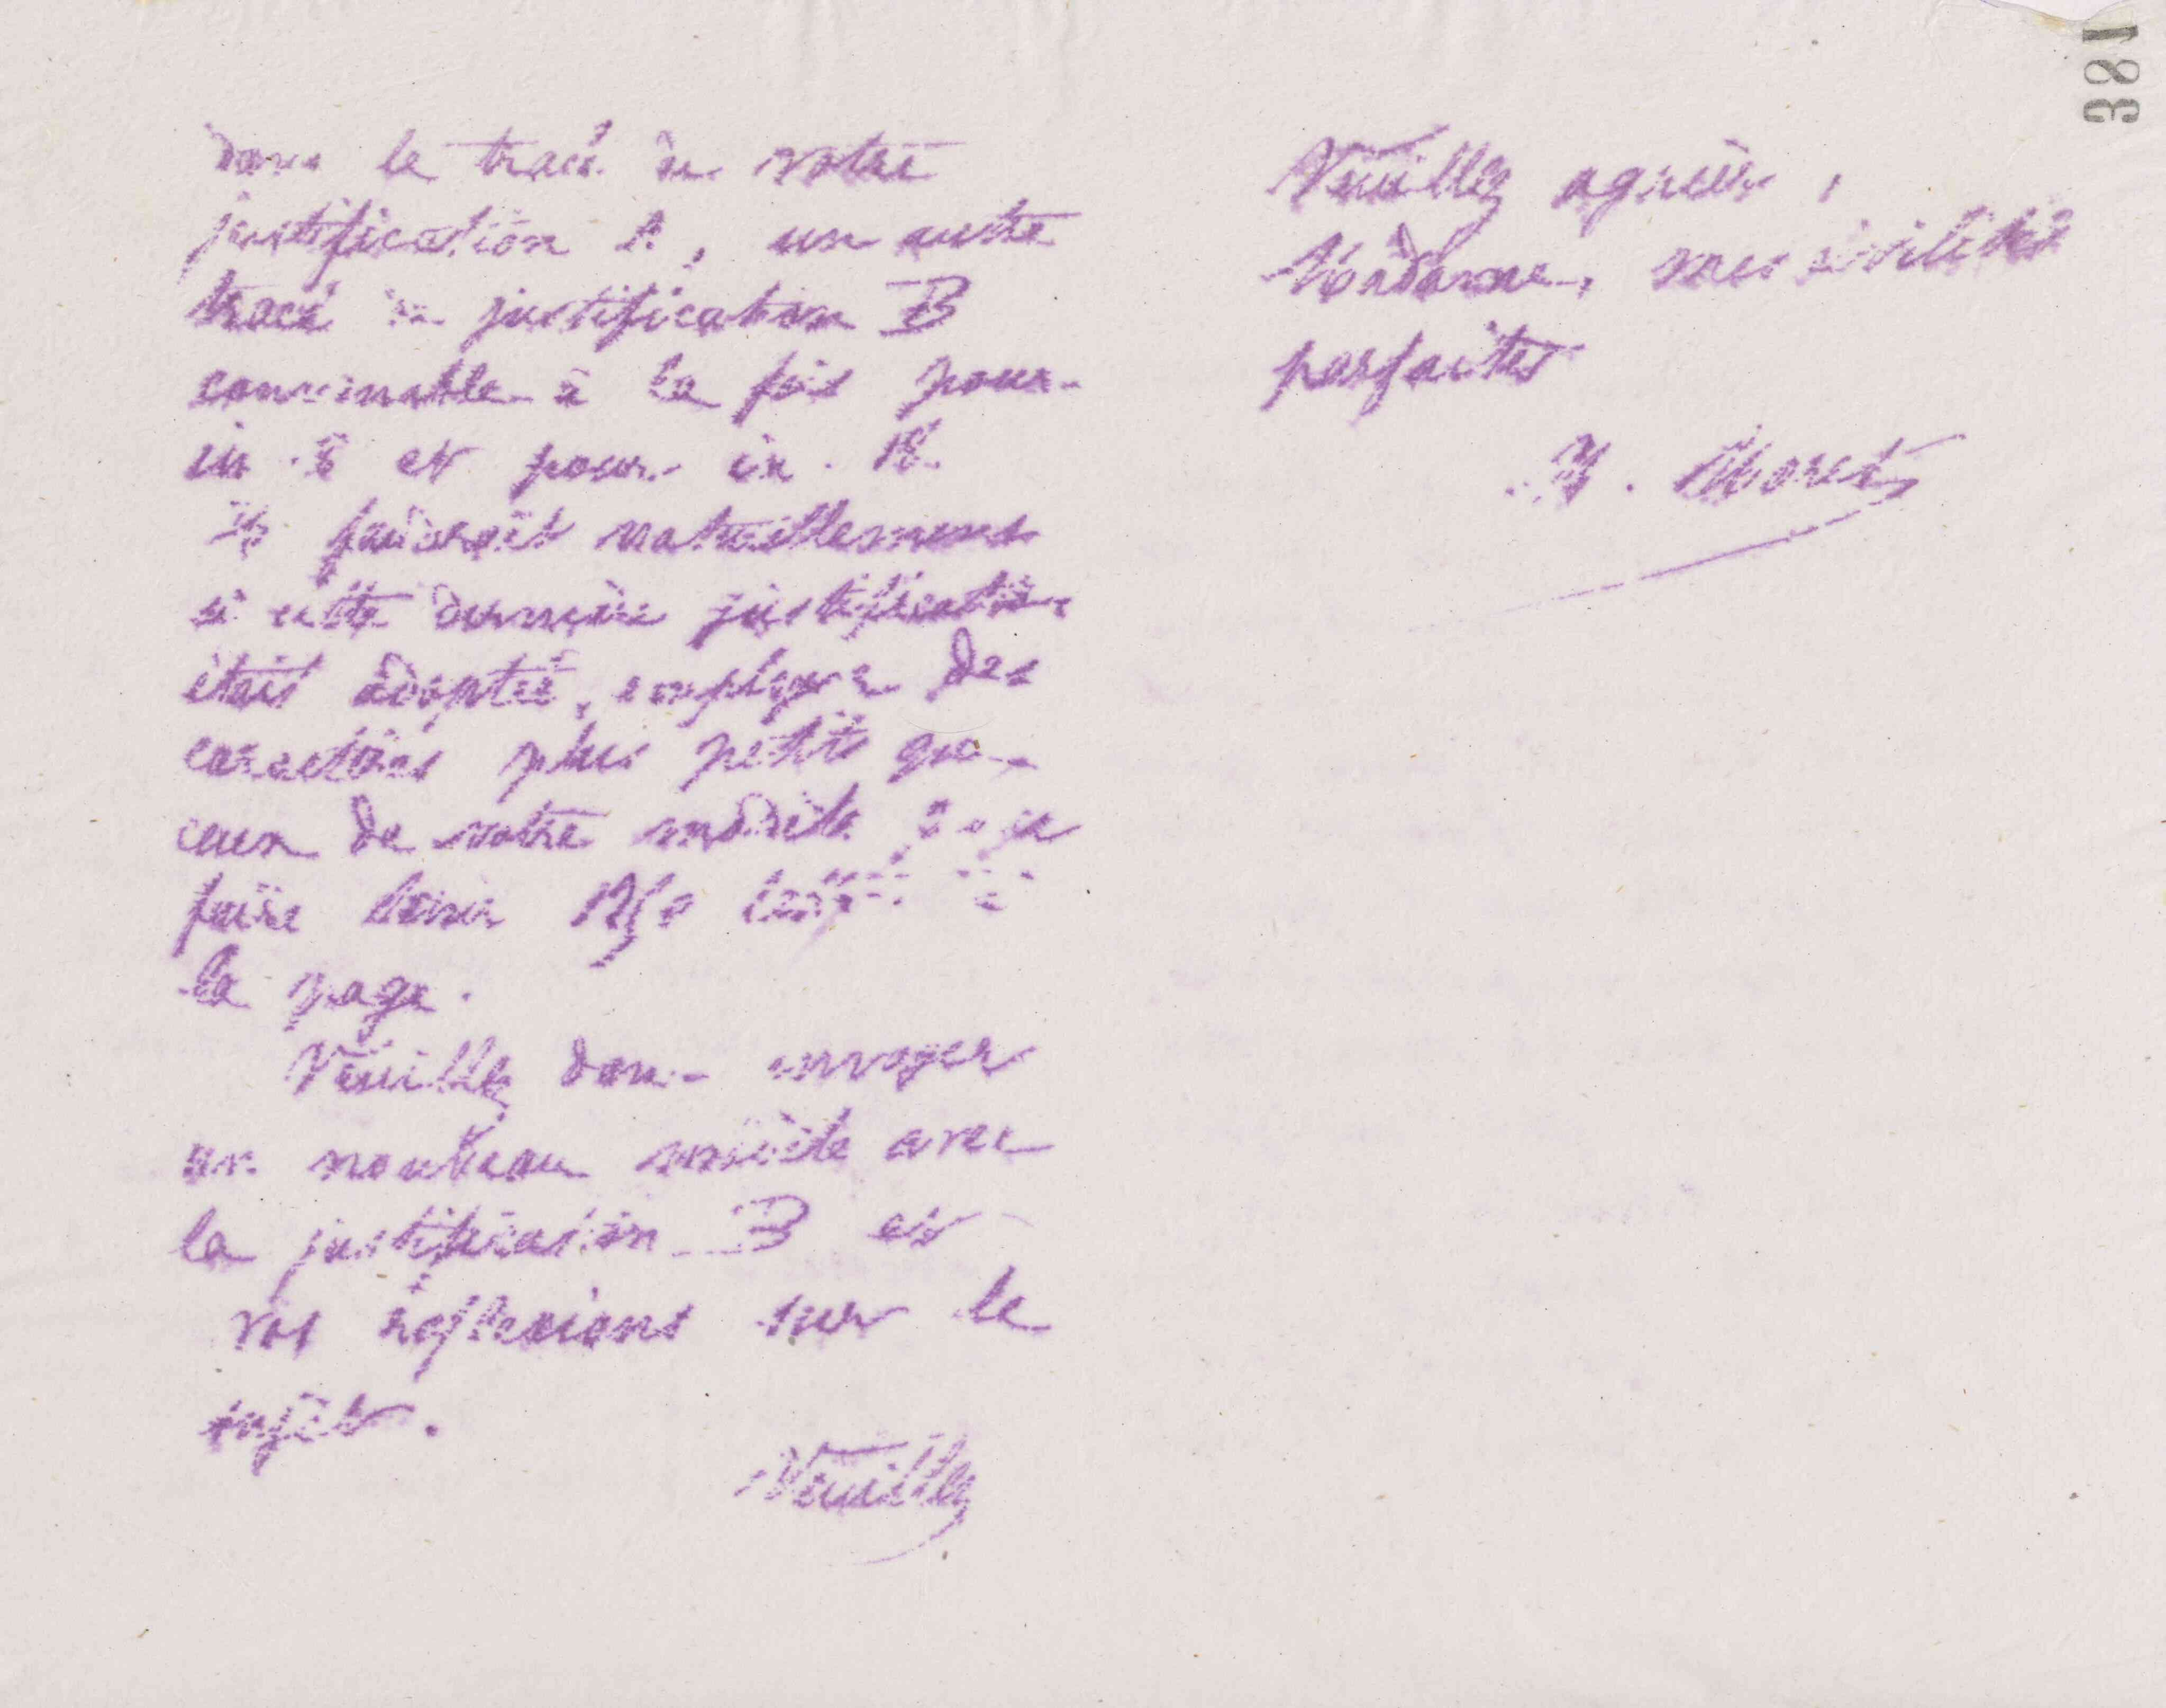 dans le tracé de votre
justification A, un autre
tracé de justification B
convenable à la fois pour
in-8 et pour in-18.
Il faudrait naturellement
si cette dernière justification
était adoptée, employer des
caractères plus petits que
ceux de votre modèle
faire tenir 1250
la page.
Veuillez donc envoyer
un nouveau modèle avec
la justification B et
vos réflexions sur le
sujet.
Veuillez
Veuillez agréer,
Madame, mes civilités
parfaites
Moret
381